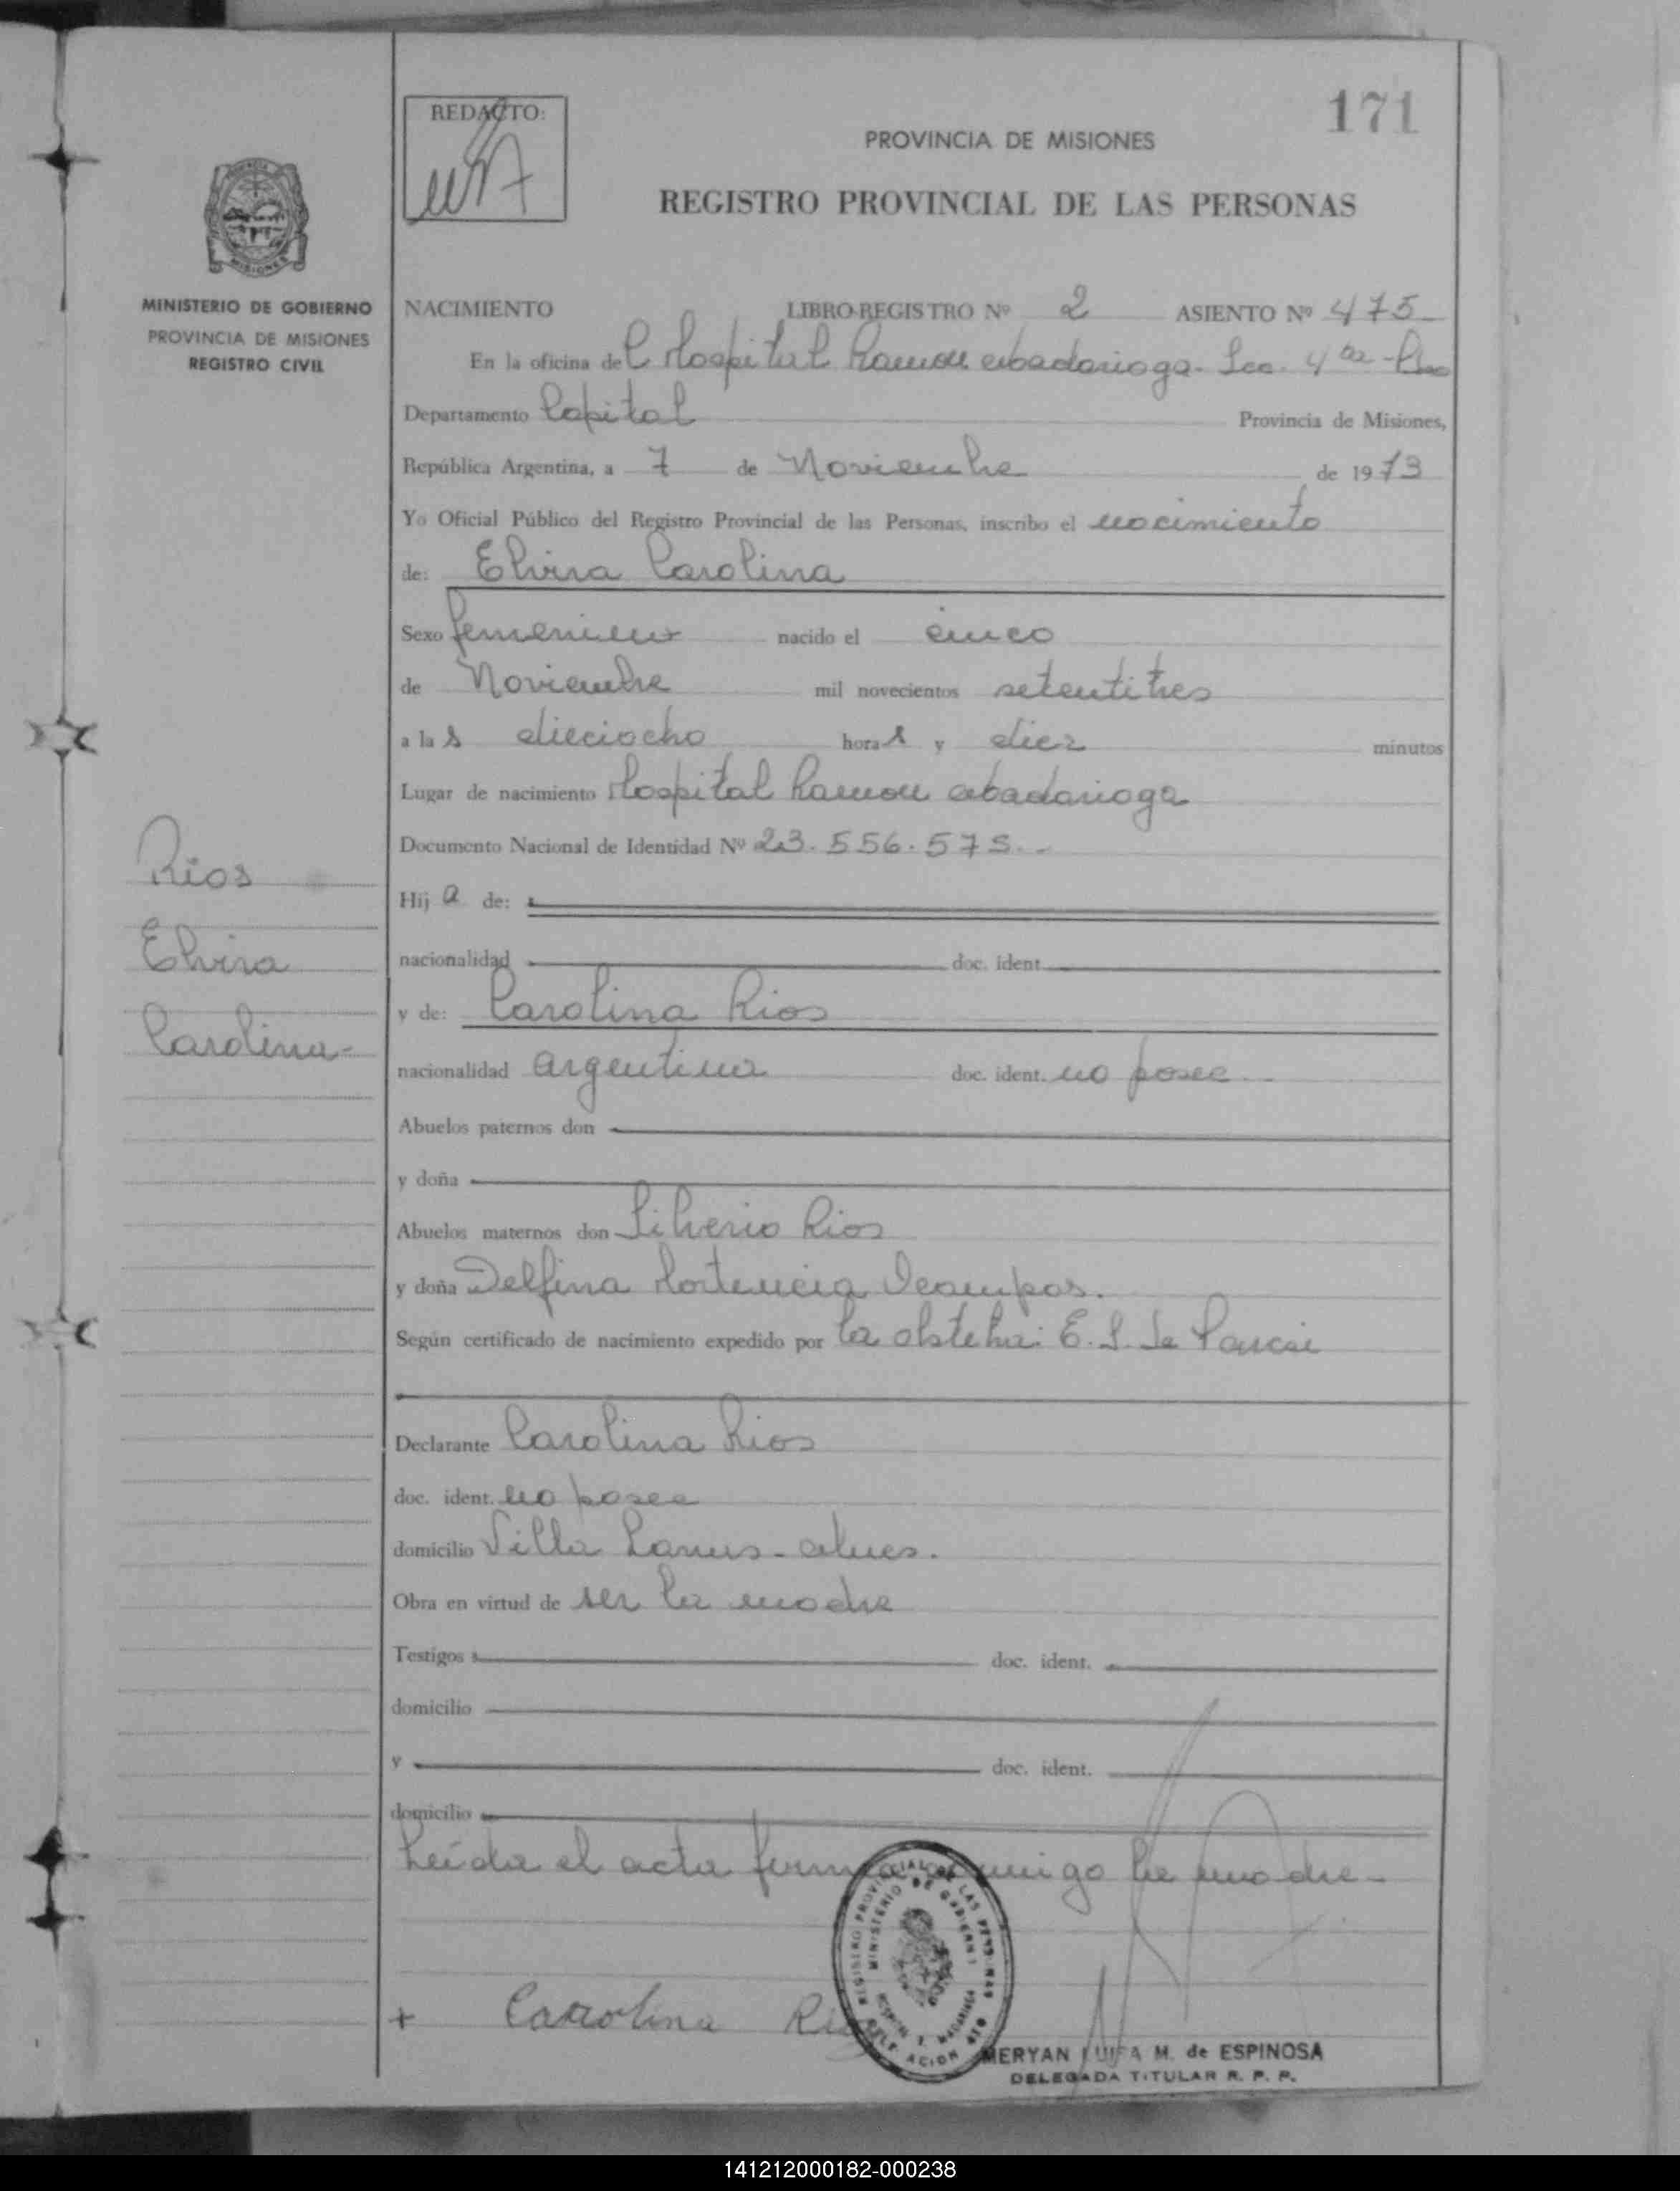 171
REDACTO:
PROVINCIA DE MISIONES
REGISTRO PROVINCIAL DE LAS PERSONAS
MISIONES
MINISTERIO DE GOBIERNO
PROVINCIA DE MISIONES
REGISTRO CIVIL
NACIMIENTO LIBRO-REGISTRO Nº 2 ASIENTO Nº 475
En la oficina del Hospital Ramon Madariaga - Sec. 4ta -
Departamento Capital Provincia de Misiones,
República Argentina, a 7 de Noviembre de 1973
Yo Oficial Público del Registro Provincial de las Personas, inscribo el nacimiento
de: Elvira Carolina
Sexo femenino nacido el cinco
de Noviembre mil novecientos setentitres
a la s dieciocho hora s y diez minutos
Lugar de nacimiento Hospital Ramon Madariaga
Documento Nacional de Identidad Nº 23.556.575.-
Hij a de:
nacionalidad doc. ident.
y de: Carolina Rios
nacionalidad argentina doc. ident. no posee
Abuelos paternos don
y doña
Abuelos maternos don Silverio Rios
y doña Delfina Hortencia Ocampos.
Según certificado de nacimiento expedido por la obstetri: E. S. de
Declarante Carolina Rios
doc. ident. no posee
domicilio Villa Lanus - Mnes.
Obra en virtud de ser la madre
Testigos doc. ident.
domicilio
y doc. ident.
domicilio
Leída el acta firma conmigo la madre -
+ Carolina Rios
Rios
Elvira
Carolina-
REGISTRO PROVINCIAL DE LAS PERSONAS
MINISTERIO DE GOBIERNO
HOSPITAL R. MADARIAGA
DELEGACION
MERYAN LUISA M. de ESPINOSA
DELEGADA TITULAR R. P. P.
141212000182-000238